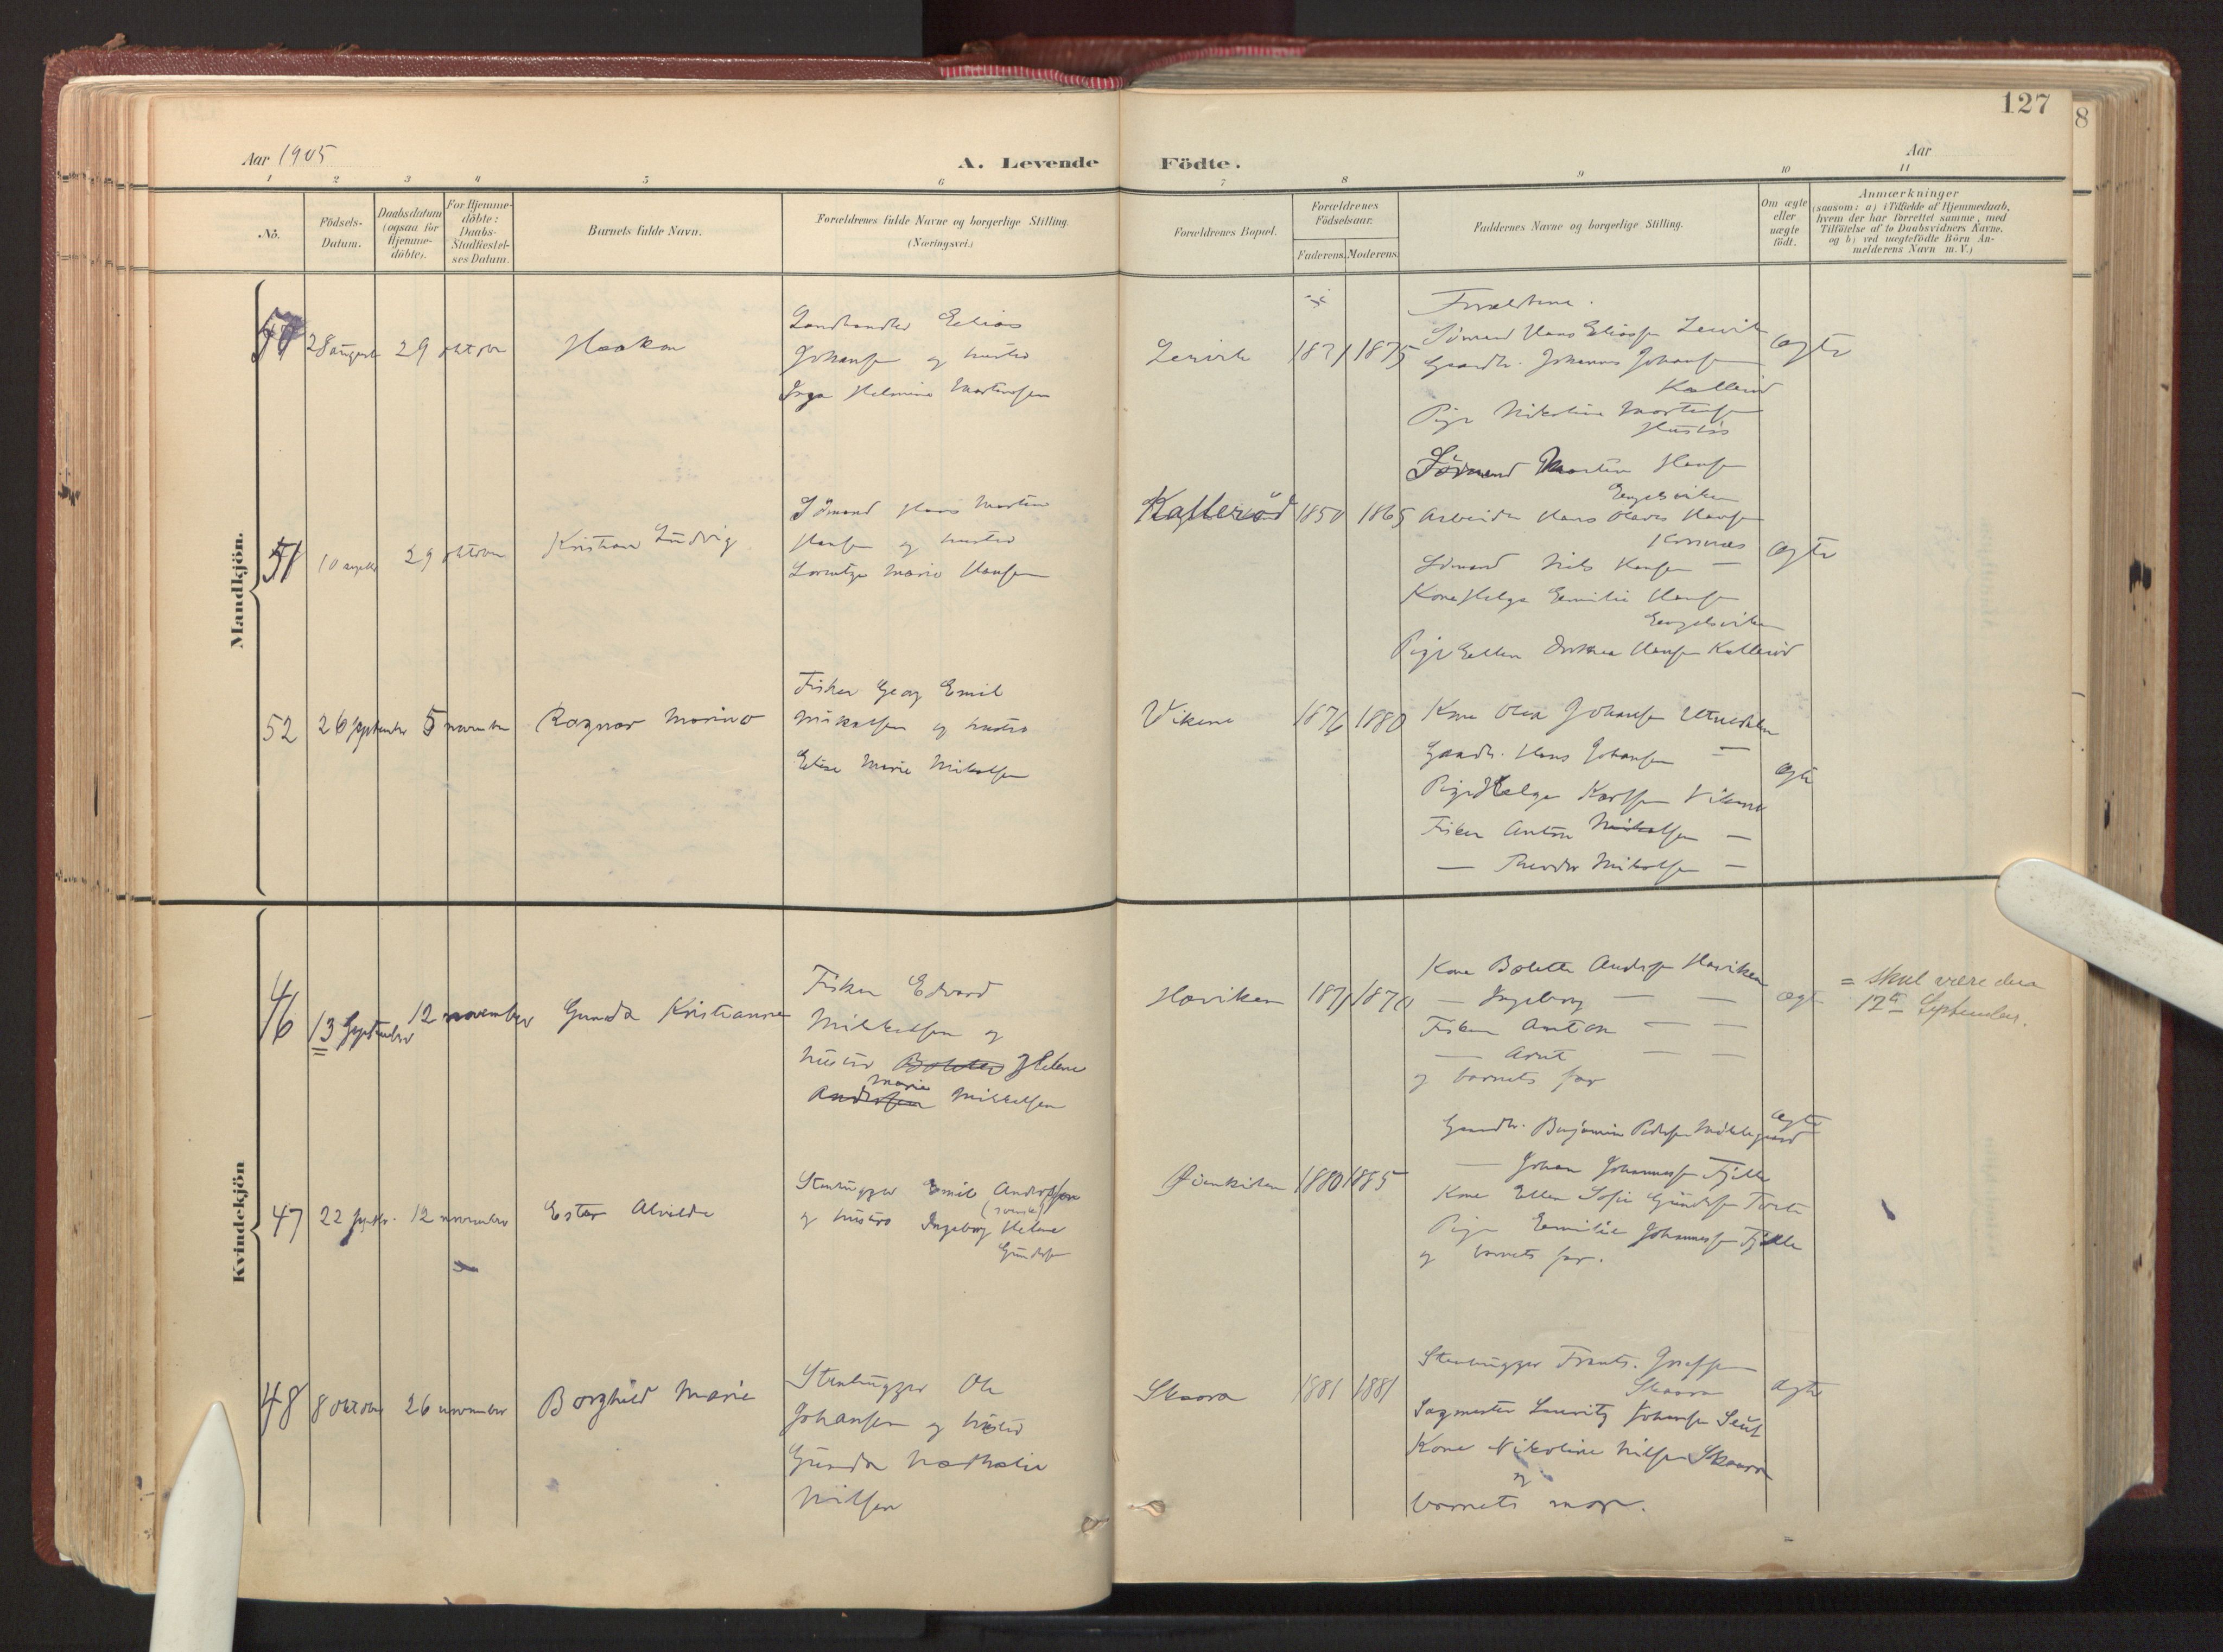 127
8
Aar 1905
A. Levende Födte.
Aar
1 2 3 4 5 6 7 8 9 10 11
No.
Födsels-
Datum.
Daabsdatum
(ogsaa for
Hjemme-
döbte).
For Hjemme-
döbte:
Daabs-
Stadfæstel-
ses Datum.
Barnets fulde Navn.
Forældrenes fulde Navne og borgerlige Stilling.
(Næringsvei.)
Forældrenes Bopæl.
Forældrenes
Födselsaar.
Faderens. Moderens.
Faddernes Navne og borgerlige Stilling.
Om ægte
eller
uægte
födt.
Anmærkninger
(saasom: a) i Tilfælde af Hjemmedaab,
hvem der har forrettet samme, med
Tilföielse af to Daabsvidners Navne,
og b) ved uægtefödte Börn An-
melderens Navn m. V.)
Mandkjön.
50
28 august
29 oktober
Haakon
Landhandler Elias
Johansen og hustru
Inga Helmine Martinsen
Lervik
1871 1875
Forældrene.
Sömand Hans Eliassen Lervik
Gaardbr. Johannes Johansen
Kallerød
Pige Nikoline Martinsen
ægte
51
10 septbr
29 oktober
Kristian Ludvig
Sömand Hans Martin
Hansen og hustru
Lorentze Marie Hansen
Kallerød
1850 1865
Sömand Martin Hansen
Engelsviken
Arbeider Hans Olaves Hansen
Sömand Nils Hansen —
Kone Helga Emilie Hansen
Engelsviken
Pige Ellen Hansen Kallerød
ægte
52
26 september
5 november
Ragnar Marino
Fisker Georg Emil
Mikalsen og hustru
Elise Marie Mikalsen
Vikene
1876 1880
Kone Olea Johansen
Gaardbr. Hans Johansen —
Pige Helga Karlsen Vikene
Fisker Anton Mikalsen —
— Theodor Mikalsen —
ægte
Kvindekjön
46
13 September
12 november
Gunda Kristianne
Fisker Edvard
Mikkelsen og
hustru Bolette Helene
Marie
Andersen Mikkelsen
Haviken
1871 1870
Kone Bolette Andersen Haviken
— Ingeborg — —
Fisker Anton — —
— Arnt — —
og barnets far
ægte
= skal være den
12te September.
47
22 septbr.
12 november
Ester Alvilde
Stenhugger Emil Andersson
(svensk)
og hustru Ingeborg Helene
Gundersen
1880 1885
Gaardbr. Benjamin Pedersen
— Johan Johannessen Fjelle
Kone Ellen Sofie Gundersen
Pige Emilie Johannessen Fjelle
og barnets far.
ægte
48
8 oktober
26 november
Borghild Marie
Stenhugger Ole
Johansen og hustru
Gunda Nathalie
Nilsen
Skaara
1881 1881
Stenhugger Frants. Josefsen
Skaara
Sagmester Lauritz Johansen
Kone Nikoline Nilsen Skaara
og
barnets mor.
ægte